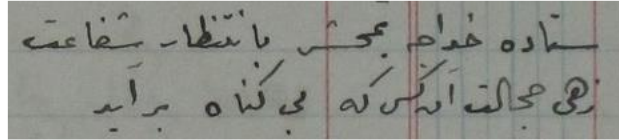 ستاده خواجه بمحشر بانتظار شفاعت
زهی خجالت آن کس که بی گناه برآید